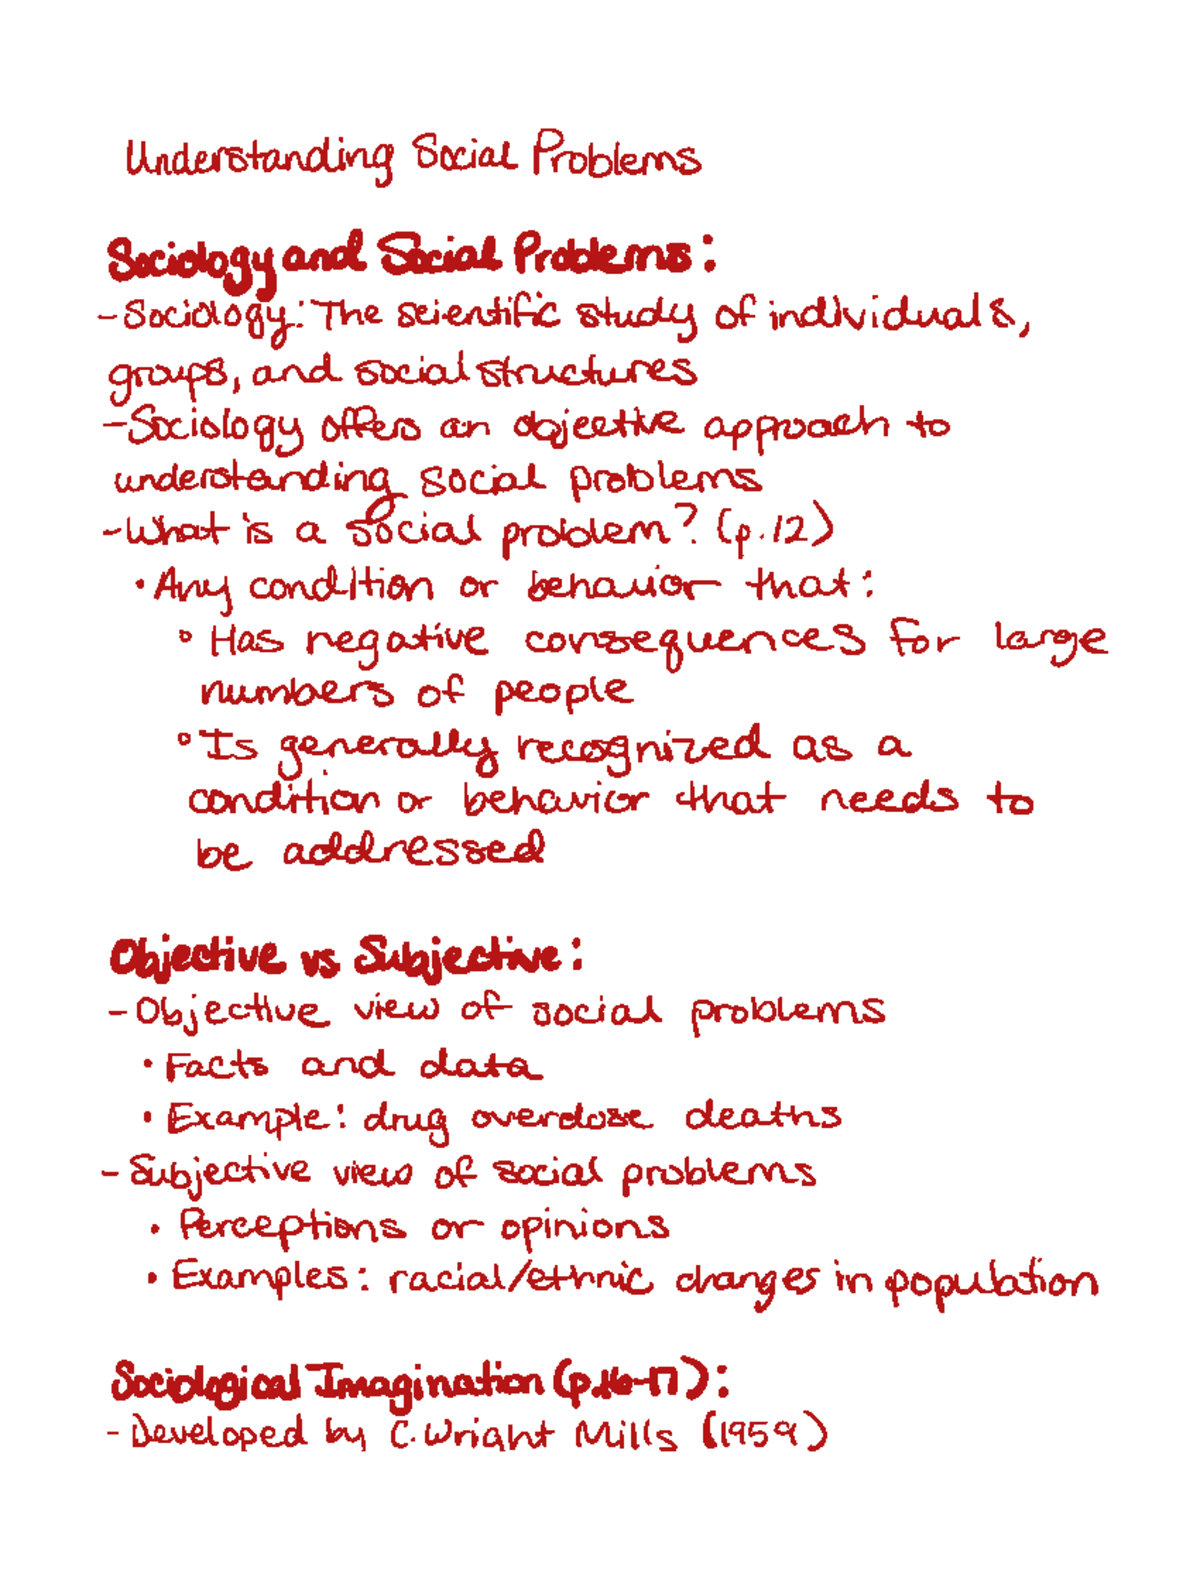 Understanding Social Problems
Sociology and Social Problems:
- Sociology: The scientific study of individuals,
groups, and social structures
- Sociology offers an objective approach to
understanding social problems
- What is a social problem? (p.12)
• Any condition or behavior that:
◦ Has negative consequences for large
numbers of people
◦ Is generally recognized as a
condition or behavior that needs to
be addressed
Objective vs Subjective:
- Objective view of social problems
• Facts and data
• Example: drug overdose deaths
- Subjective view of social problems
• Perceptions or opinions
• Examples: racial/ethnic changes in population
Sociological Imagination (p.16-17):
- Developed by C. Wright Mills (1959)